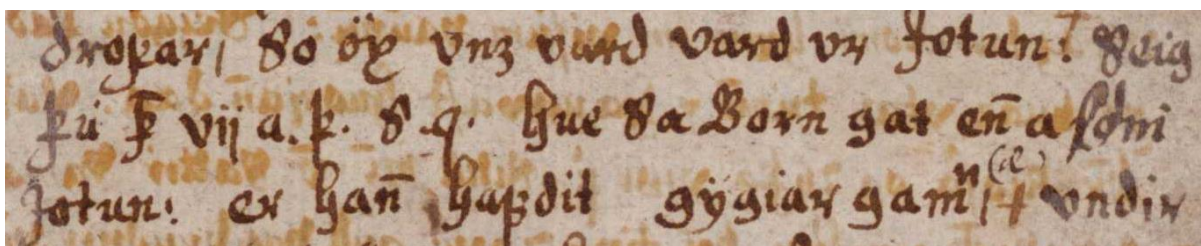 dropar, so öx unz vard vard ur Jotun: Seig
þu þ vij a. þ. S .q. hue sa Born gat en̄ a
Jotun: er han̄ hafdit gÿgiar gam̄n undir